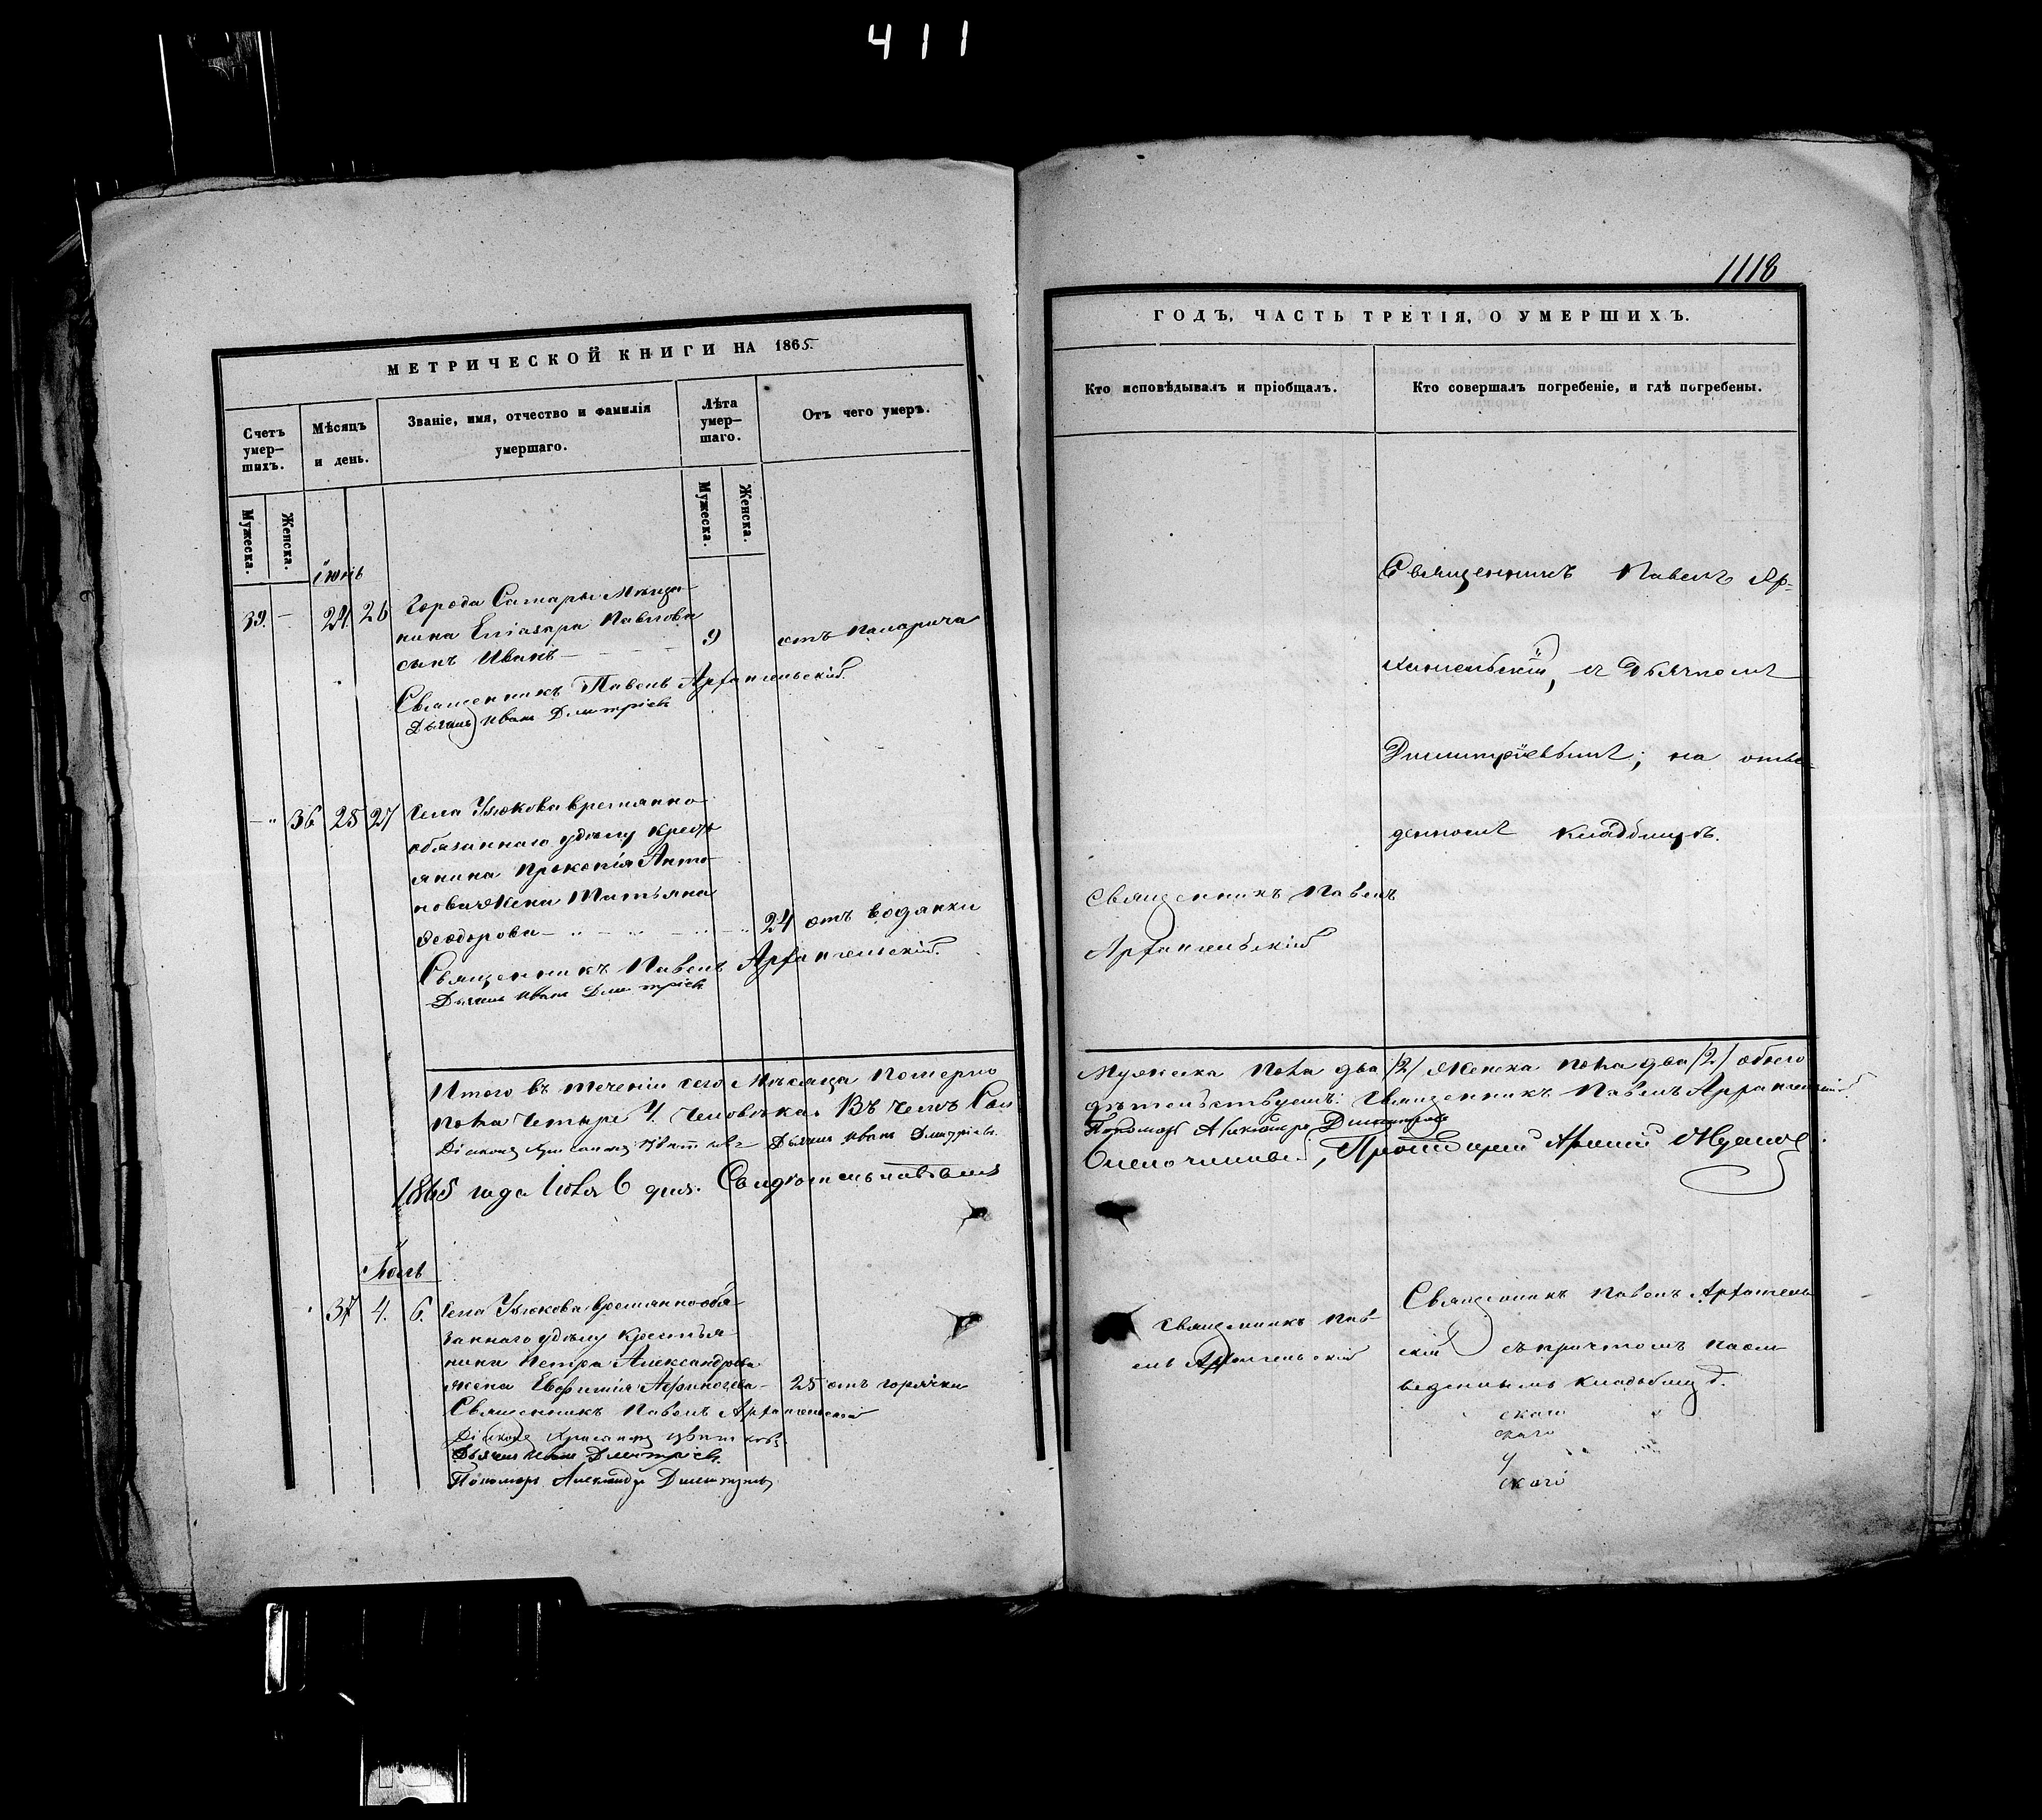 411
1118
МЕТРИЧЕСКОЙ КНИГИ НА 1865.
Счетъ умер-
шихъ.
Мѣсяцъ
и день.
Званіе, имя, отчество и фамилія
умершаго.
Лѣта
умер-
шаго.
Отъ чего умеръ.
Мужеска.
Женска.
Мужеска.
Женска.
іюнь
39. - 24 26 Города Самары Мѣща-
нина Еліазара Павлова
сынъ Иванъ 9 отъ
Священникъ Павелъ Архангельскій.
Дьячекъ Иванъ Дмитріевъ
36 25 27 Села Узюкова временно
обязаннаго удѣлу Кресть
янина Прокопія Анто-
нова жена Татьяна
Ѳеодорова 24 отъ водянки
Священникъ Павелъ Архангельскій.
Дьячекъ Иванъ Дмитріевъ
Итого въ теченіи сего Мѣсяца Померло
пола четыре 4. человѣка. Въ чемъ Сви
Діаконъ Дьячекъ Иванъ Дмитріевъ.
1865 года Іюля 6 дня. Свидѣтельствовалъ
Іюль
37 4. 6. Села Узюкова временнообя-
заннаго удѣлу Крестья-
нина Петра Александрова
жена Евфимія 25 отъ горячки
Священникъ Павелъ Архангельскій
Діаконъ
Дьячекъ Иванъ Дмитріевъ.
Пономарь Александръ Дмитріевъ
ГОДЪ, ЧАСТЬ ТРЕТІЯ, О УМЕРШИХЪ.
Кто исповѣдывалъ и пріобщалъ.
Кто совершалъ погребеніе, и гдѣ погребены.
Священникъ Павелъ Ар-
хангельскій, съ Дьячкомъ
Димитріевымъ; на отве-
денномъ кладбищѣ.
Священникъ Павелъ
Архангельскій
Мужеска пола два /2/ Женска пола два /2/ обоего
дѣтельствуемъ: Священникъ Павелъ Архангельскій
Пономарь Александръ Дмитріевъ
Благочинный, Протоіерей
Священникъ Пав-
елъ Архангельскій
Священникъ Павелъ Архангель
скій съ причтомъ на отве
веденнымъ кладбищѣ.
скаго
скаго
скаго